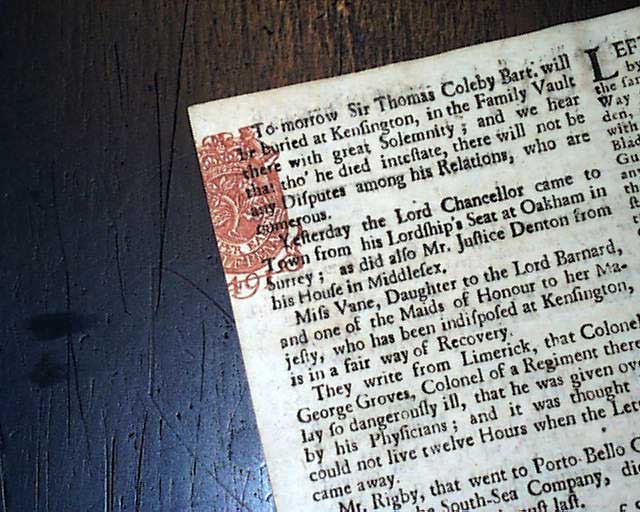 To-morrow Sir Thomas Coleby Bart. will
be buried at Kenſington, in the Family Vault
there with great Solemnity; and we hear
that tho' he died inteſtate, there will not be
any Diſputes among his Relations, who are
numerous.
Yeſterday the Lord Chancellor came to
Town from his Lordſhip's Seat at Oakham in
Surrey; as did alſo Mr. Juſtice Denton from
his Houſe in Middleſex.
Miſs Vane, Daughter to the Lord Barnard,
and one of the Maids of Honour to her Ma-
jeſty, who has been indiſpoſed at Kenſington,
is in a fair way of Recovery.
They write from Limerick, that Colonel
George Groves, Colonel of a Regiment there
lay ſo dangerouſly ill, that he was given ove
by his Phyſicians; and it was thought
could not live twelve Hours when the Lett
came away.
Mr. Rigby, that went to Porto-Bello
South-Sea Company, di
laſt.
LEFT
by
the
Way
den,
with
Blac